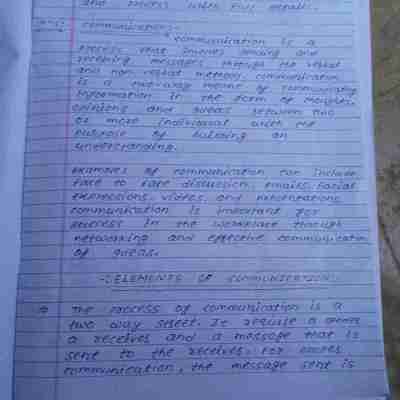 and process with full details.
communication:-
communication is a
process that involves sending and
receiving messages through the verbal
and non verbal methods. communication
is a two-way means of communicating
information in the form of thoughts,
opinions and ideas between two
or more individual with the
purpose of building an
understanding.
Examples of communication can include
face to face discussion, emails, facial
expressions, videos, and presentations
communication is important for
success in the workplace through
networking and effective communication
of ideas.
-: ELEMENTS OF COMMUNICATION:-
The process of communication is a
two way street. It require a
a receives and a message that is
sent to the receives. For
communication, the message sent is